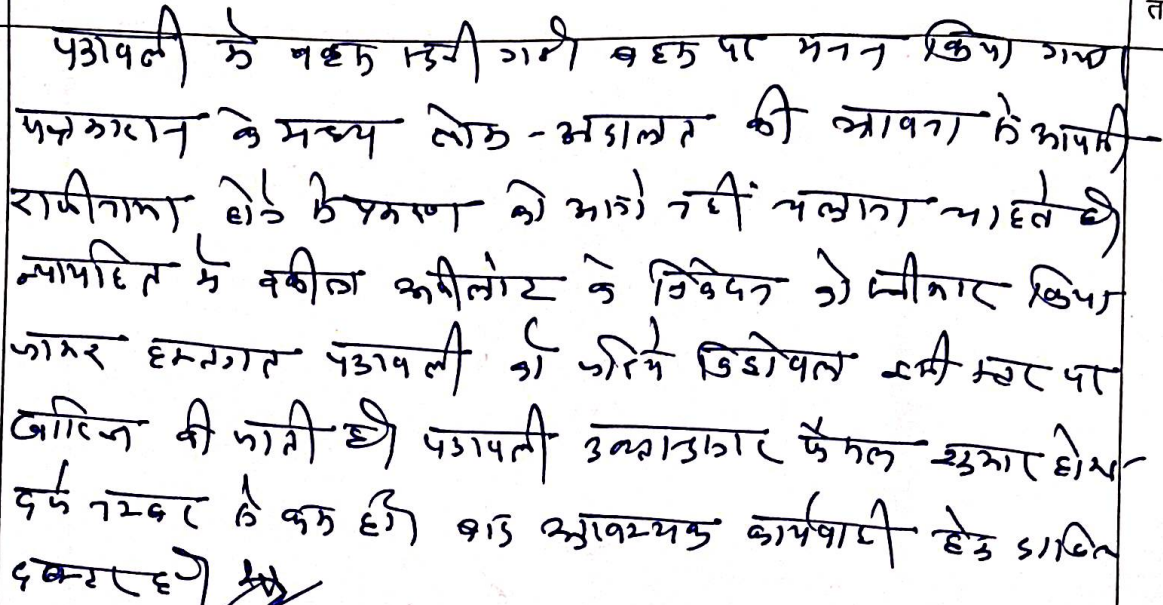 पत्रावली में बहस सुनी गयी बहस पर मनन किया गया।
पक्षकारान के मध्य लोक-अदालत की भावना से आपसी
राजीनामा होने से प्रकरण को आगे नहीं चलाना चाहते है।
न्यायहित में वकील अपीलांट के निवेदन को स्वीकार किया
जाकर हस्तगत पत्रावली को जरिये विड्रोवल इसी स्तर पर
खारिज की जाती है। पत्रावली उक्तानुसार फैसल शुमार होकर
दर्ज नम्बर से कम हो। बाद आवश्यक कार्यवाही हेतु दाखिल
दफ्तर हो।